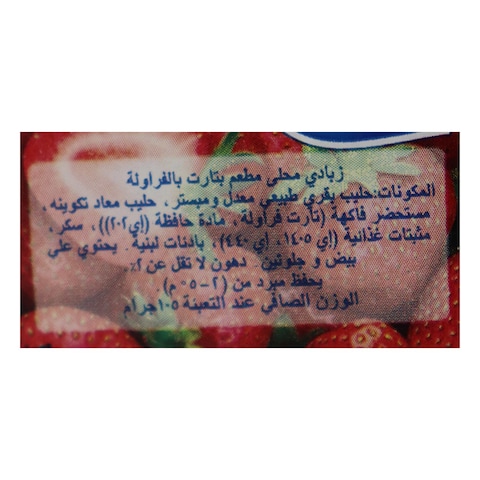 زبادي محلى مطعم بتارت بالفراولة
المكونات:حليب بقري طبيعي معدل ومبستر، حليب معاد تكوينه،
مستحضر فاكهة (تارت فراولة، مادة حافظة (إي٢٠٢))، سكر.
مثبتات غذائية (إي ١٤٠٥، إي ٤٤٠)، بادئات لبنية. يحتوي علي
بيض و جلوتين دهون لا تقل عن ٢٪
يحفظ مبرد من (٢-٥ م)
الوزن الصافي عند التعبئة ١٠٥جرام